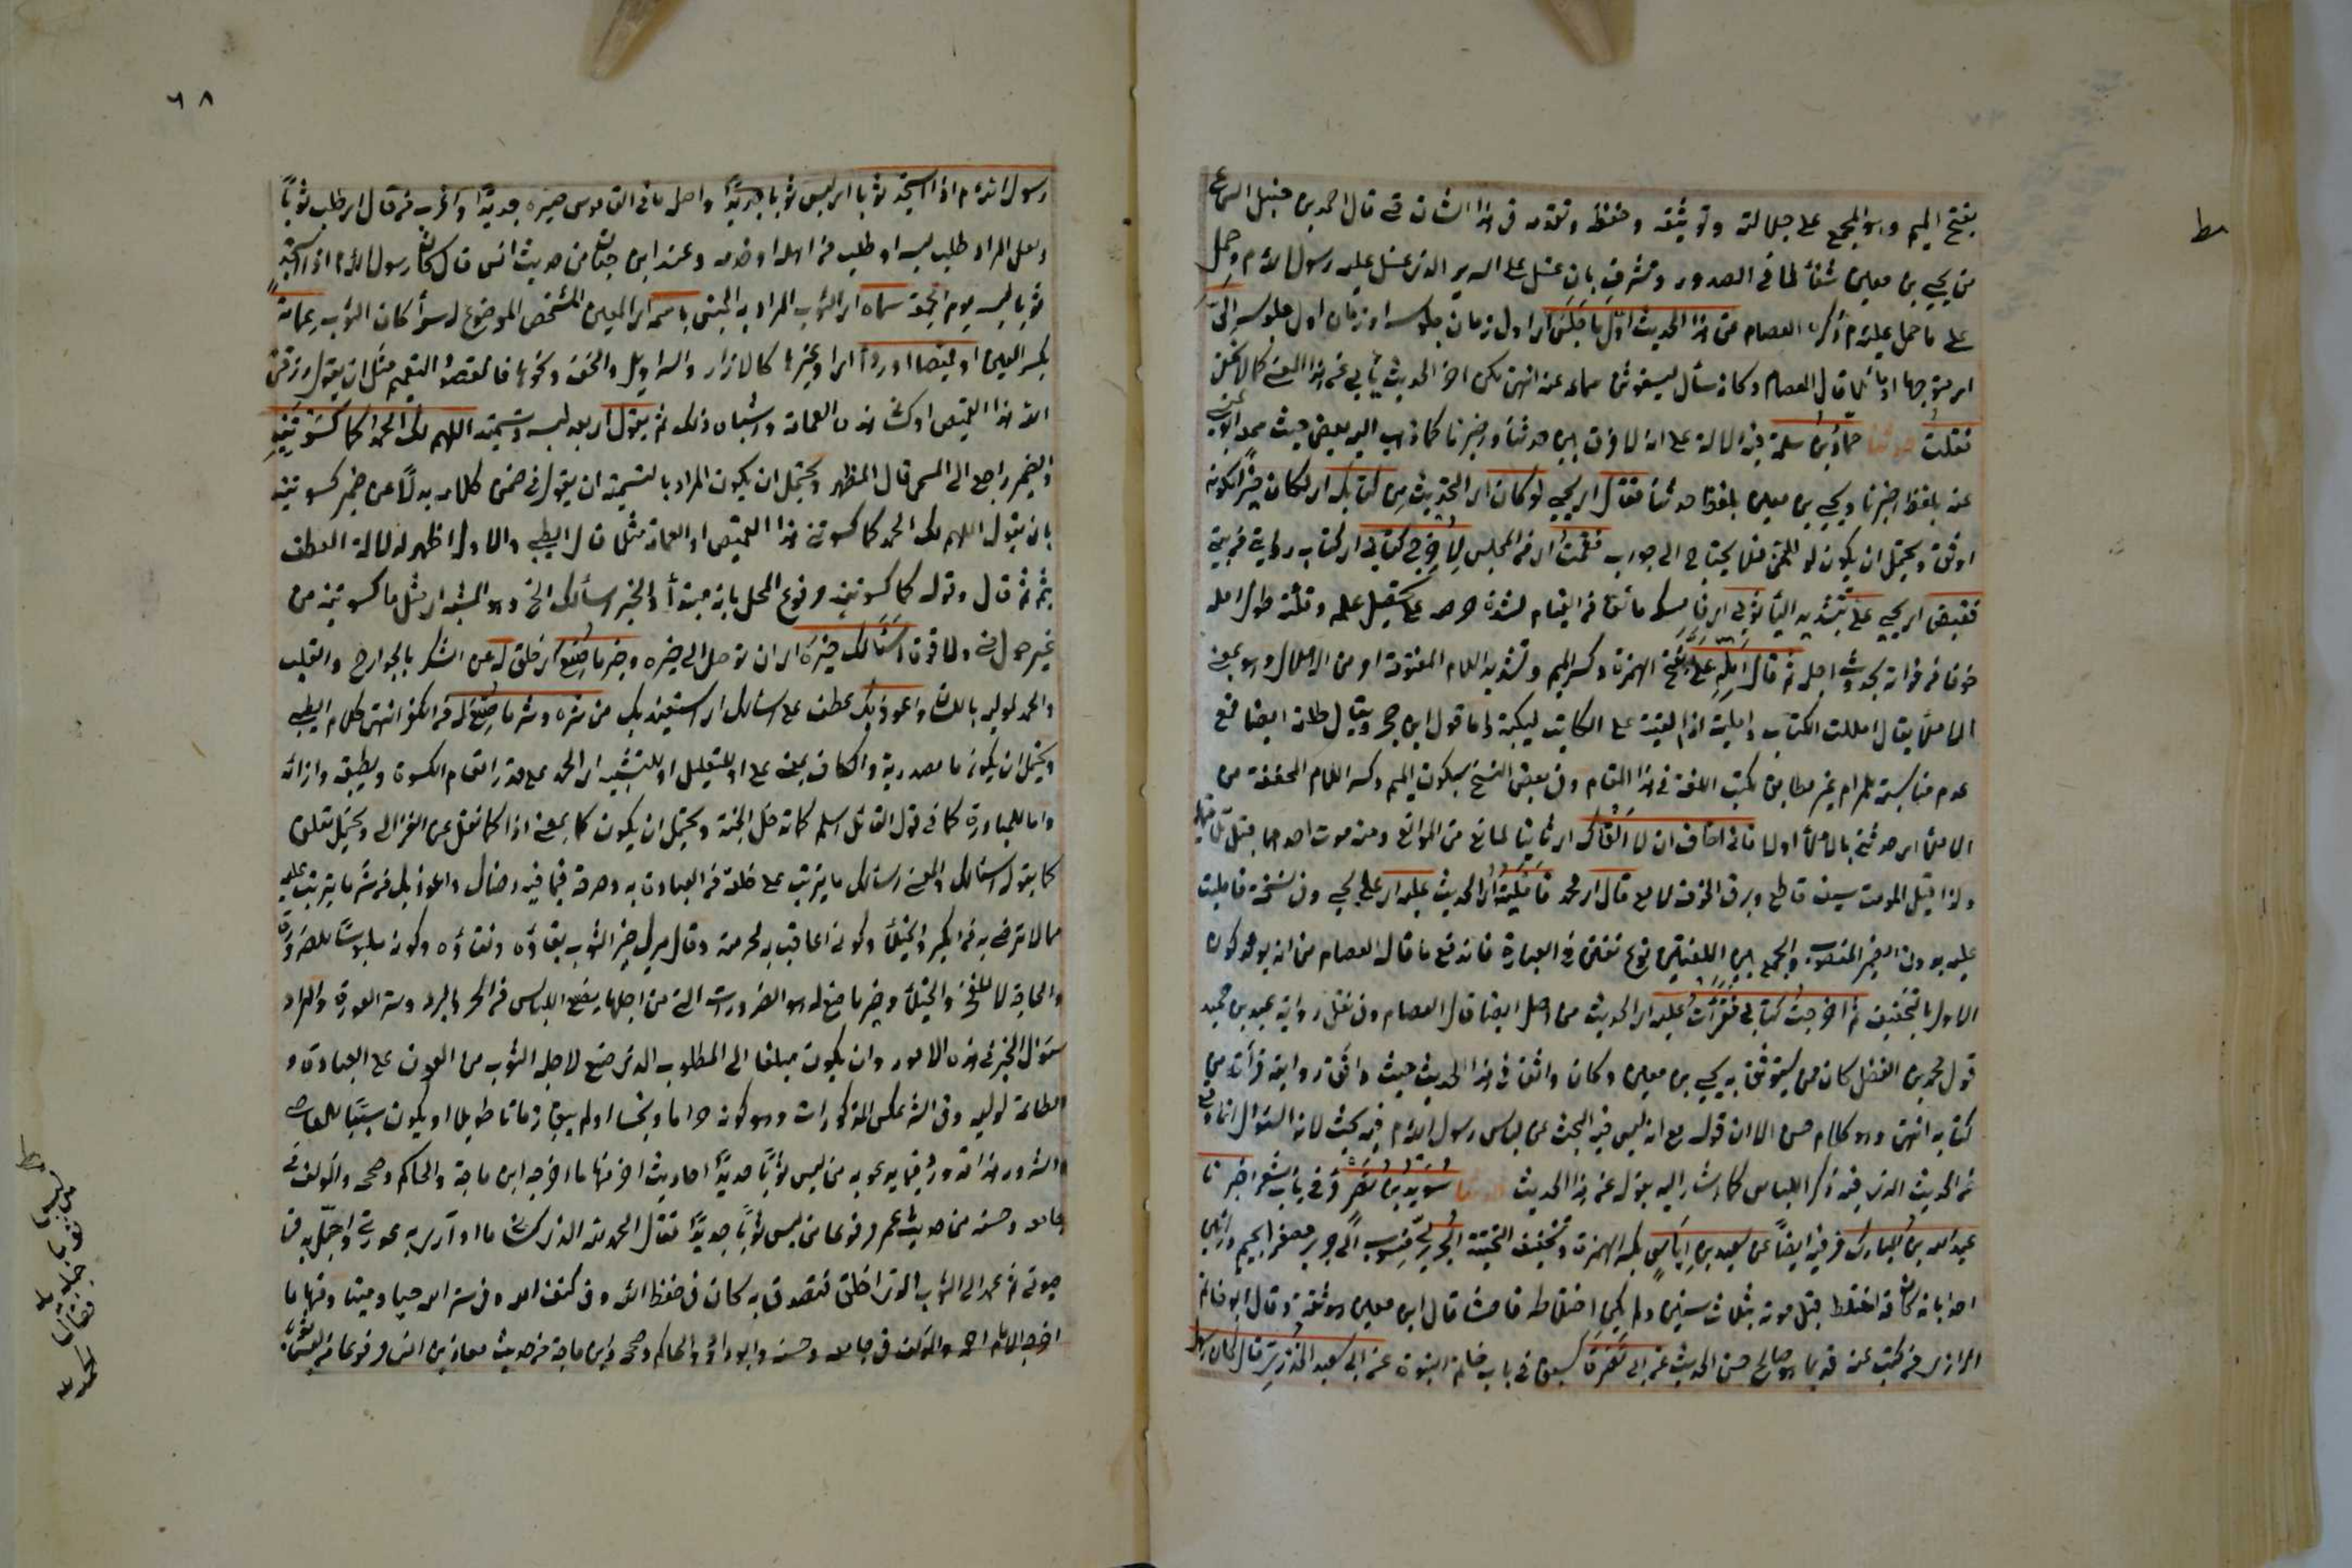 بفتح الميم وهو المجمع على جلالته وتوثيقه وحفظه وتقدمه في هذا الشان قال احمد بن حنبل السماع
من يحيى بن معين شفاء لما في الصدور وتشرف بان غسل على السرير الذي غسل عليه رسول الله م وحمل
على ما حمل عليه م ذكره العصام عن هذا الحديث اول ما جلس اي اول زمان جلوسه او زمان اول جلوسه الي
قال العصام وكانه سأل ليستوثق سماعه عنه انتهى لكن اخر الحديث يأبى عن هذا المعنى كما لا يخفى
فقلت حدثنا حماد بن سلمة فيه دلالة على انه لا فرق بين حدثنا واخبرنا كما ذهب اليه بعض حيث
عنه بلفظ اخبرنا ويحيى بن معين بلفظ حدثنا فقال اي يحيى لو كان اي الحديث من كتابك اي لكان خيرا لكونه
اوثق ويحتمل ان يكون لو للتمني فلا يحتاج الى جواب فقمت اي من المجلس لاخرج كتابي اي كتاب روايتي
فقبض اي يحيى على ثوبي اي مانعا من القيام لشدة حرصه على تحصيل علمه وقلة طول امله
خوفا من فواته بحدوث اجله ثم قال امله علي بفتح الهمزة وكسر الميم وتشديد اللام المفتوحة امر من الاملال وهو بمعنى
الاملاء يقال امللت الكتاب وامليته اذا القيته على الكاتب ليكتبه واما قول ابن حجر ويقال ايضا فمع
عدم مناسبته للمرام غير مطابق لكتب اللغة في هذا المقام وفي بعض النسخ بسكون الميم وكسر اللام المخففة من
الاملاء اي حدثني بالاملاء اولا فاني اخاف ان لا القاك اي ثانيا لمانع من الموانع ومنه موت احدهما قبل
ولذا قيل الوقت سيف قاطع وبرق لامع قال اي محمد فامليته اي الحديث عليه اي على يحيى وفي نسخة فامليت
عليه بدون الضمير المنصوب والجمع بين اللغتين نوع تفنن في العبارة فاندفع ما قال العصام من انه
الاول بالتخفيف ثم اخرجت كتابي فقرأت عليه اي الحديث من اصل ايضا قال العصام وفي نقل رواية عبد بن حميد
قول محمد بن الفضل كان من يستوثق به يحيى بن معين وكان واثقا في هذا الحديث حيث وافق روايته قرأته من
كتابه انتهى وهو كلام حسن الا ان قوله مع انه ليس فيه البحث عن لباس رسول الله م فيه بحث لان السؤال انما وقع
عن الحديث الذي فيه ذكر اللباس كما اشار اليه بقوله عن هذا الحديث حدثنا سويد بن نصر مر في باب شعر اخبرنا
عبد الله بن المبارك مر فيه ايضا عن سعيد بن اياس بكسر الهمزة وتخفيف التحتية الجريري منسوب الى جرير مصغر الجيم
احد ابائه كان ثقة اختلط قبل موته بثلاث سنين ولم يكن اختلاطه فاحشا قال ابن معين هو ثقة وقال ابو حاتم
الرازي من كتب عنه قديما هو صالح حسن الحديث عن ابي نضرة سبق في باب خاتم النبوة عن ابي سعيد الخدري قال كان
٦٨
رسول الله م اذا استجد ثوبا اي لبس ثوبا جديدا واصله ما في القاموس صيره جديدا واغرب من قال اي طلب ثوبا
ولعل المراد طلب لبسه او طلبه من اهله او خدمه وعند ابن حبان من حديث انس قال كان رسول الله م اذا استجد
ثوبا لبسه يوم الجمعة سماه اي الثوب المراد به الجنس باسمه اي المعين المشخص الموضوع له سواء كان الثوب عمامة
بكسر العين او قميصا او رداء اي او غيرها كالازار والسراويل والخف ونحوها فالمقصود التعميم مثل ان يقول رزقني
الله هذا القميص او كساني هذه العمامة واشباه ذلك ثم يقول اي بعد لبسه وتسميته اللهم لك الحمد كما كسوتنيه
والضمير راجع الى المسمى قال المظهر ويحتمل ان يكون المراد بالتسمية ان يقول في ضمن كلامه بدلا عن ضمير كسوتنيه
بان يقول اللهم لك الحمد كما كسوتني هذا القميص او العمامة مثلا قال الطيبي والاول اظهر لدلالة العطف
بثم ثم قال وقوله كما كسوتنيه مرفوع المحل بانه مبتدأ والخبر اسألك الخ وهو المشبه اي مثل ما كسوتنيه من
غير حول مني ولا قوة اسألك خيره اي ان توصل الي خيره وخير ما صنع اي خلق له من الشكر بالجوارح والقلب
والحمد لموليه باللسان واعوذ بك عطف على اسألك اي استعيذ بك من شره وشر ما صنع له من الكفر انتهى كلام الطيبي
ويحتمل ان يكون ما مصدرية والكاف بمعنى على او للتعليل او للتشبيه اي الحمد على قدر انعام الكسوة وبطبقه وازائه
واما للمبادرة كما في قول القائل اسلم كما تدخل الجنة ويحتمل ان يكون كما بمعنى اذا كما نقل عن الغزالي ويحتمل تعلق
كما بقوله اسألك والمعنى اسألك ما يترتب على خلقه من العبادة به وصرفه فيما فيه رضاك واعوذ بك من شر ما يترتب عليه
مما لا ترضى به من الكبر والخيلاء وكوني اعاقب به لحرمته وقال ميرك خير الثوب بقاؤه ونقاؤه وكونه ملبوسا للضرورة
والحاجة لا للفخر والخيلاء وخير ما صنع له هو الضرورات التي من اجلها يصنع اللباس من الحر والبرد وستر العورة والمراد
سؤال الخير في هذه الامور وان يكون مبلغا الى المطلوب الذي صنع لاجله الثوب من العون على العبادة و
الطاعة لموليه وفي الشر عكس المذكورات وهو كونه حراما ونجسا او لم يبق زمانا طويلا او يكون سببا للمعاصي
والشرور هذا وقد ورد فيما يدعو به من لبس ثوبا جديدا احاديث اخر منها ما اخرجه ابن ماجة والحاكم وصححه والمؤلف في
جامعه وحسنه من حديث عمر مرفوعا من لبس ثوبا جديدا فقال الحمد لله الذي كساني ما اواري به عورتي واتجمل به في
حيوتي ثم عمد الى الثوب الذي اخلق فتصدق به كان في حفظ الله وفي كنف الله وفي ستر الله حيا وميتا ومنها ما
اخرجه الامام احمد والمؤلف في جامعه وحسنه وابو داود والحاكم وصححه وابن ماجة من حديث معاذ بن انس مرفوعا من لبس
من لبس
ثوبا جديدا
فقال
الحمد لله